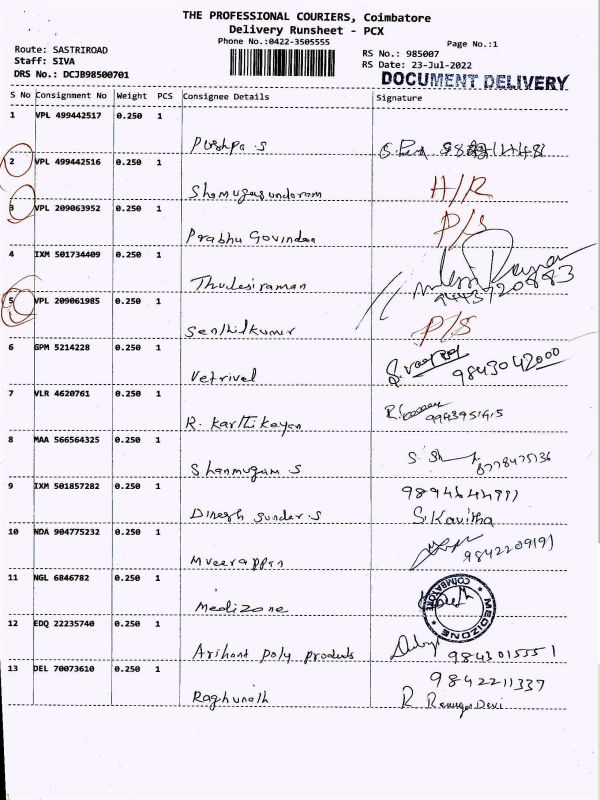 THE PROFESSIONAL COURIERS, Coimbatore
Delivery Runsheet - PCX
Phone No.:0422-3505555
Page No.:1
Route: SASTRIROAD
RS No.: 985007
Staff: SIVA
RS Date: 23-Jul-2022
DRS No.: DCJB98500701
DOCUMENT DELIVERY
S No Consignment No Weight PCS Consignee Details Signature
1 VPL 499442517 0.250 1
Pushpa S
2 VPL 499442516 0.250 1
Shamugasundaram H/R
3 VPL 209063952 0.250 1
Prabhu Govindan P/S
4 IXM 501734409 0.250 1
Thulasiraman
5 VPL 209061985 0.250 1
Senthilkumar P/S
6 GPM 5214228 0.250 1
Vetrivel 9843042000
7 VLR 4620761 0.250 1
R. Karthikeyan 9943951415
8 MAA 566564325 0.250 1
Shanmugam S
9 IXM 501857282 0.250 1
Dinesh Sunder S S. Kavitha
10 NDA 904775232 0.250 1
Mveerappan 9842209191
11 NGL 6846782 0.250 1
Medizone
MEDIZONE
COIMBATORE
12 EDQ 22235740 0.250 1
Arihant Poly products 9843015551
13 DEL 70073610 0.250 1
9842211337
Raghunath R Renuga Devi